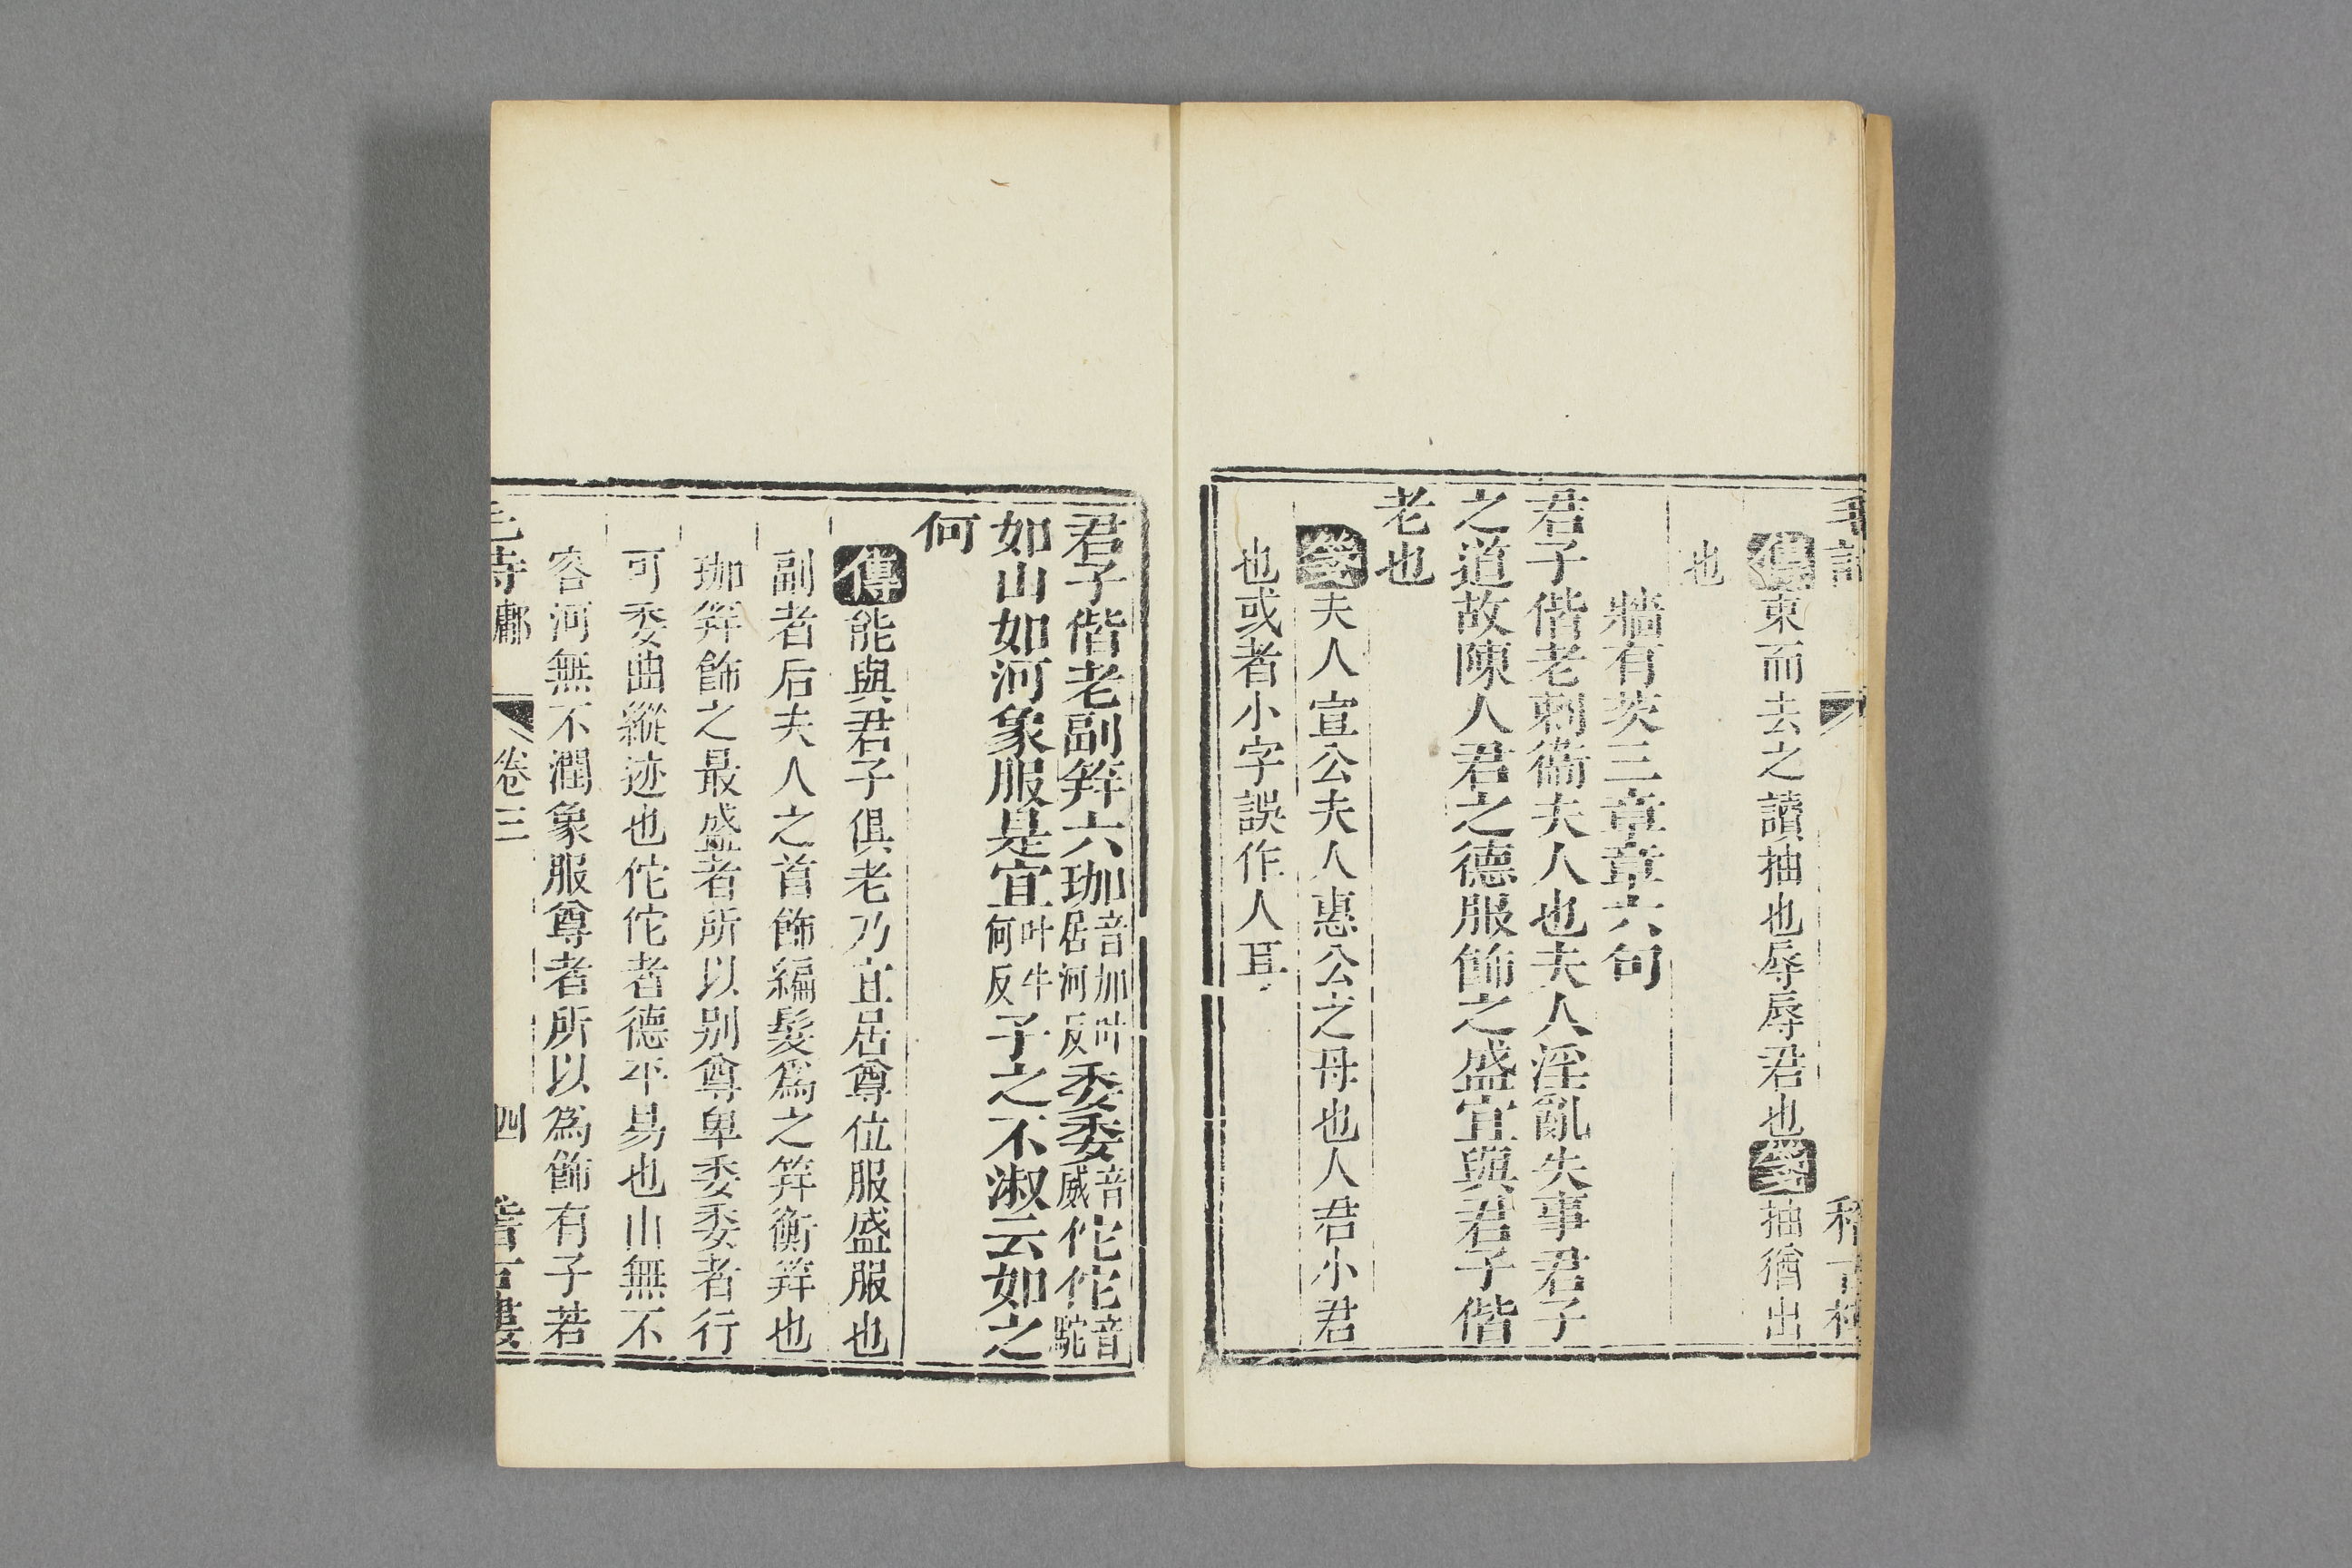 傳東而去之讀抽也辱辱君也箋抽猶出
也
牆有茨三章章六句
君子偕老刺衞夫人也夫人淫亂失事君子
之道故陳人君之德服飾之盛宜與君子偕
老也
箋夫人宣公夫人惠公之母也人君小君
也或者小字誤作人耳
君子偕老副笄六珈音加叶居河反委委音威佗佗音駝
如山如河象服是宜叶牛何反子之不淑云如之
何
傳能與君子俱老乃宜居尊位服盛服也
副者后夫人之首飾編髮爲之笄衡笄也
珈笄飾之最盛者所以别尊卑委委者行
可委曲縱迹也佗佗者德平易也山無不
容河無不潤象服尊者所以為飾有子若
毛詩鄘 卷三 四